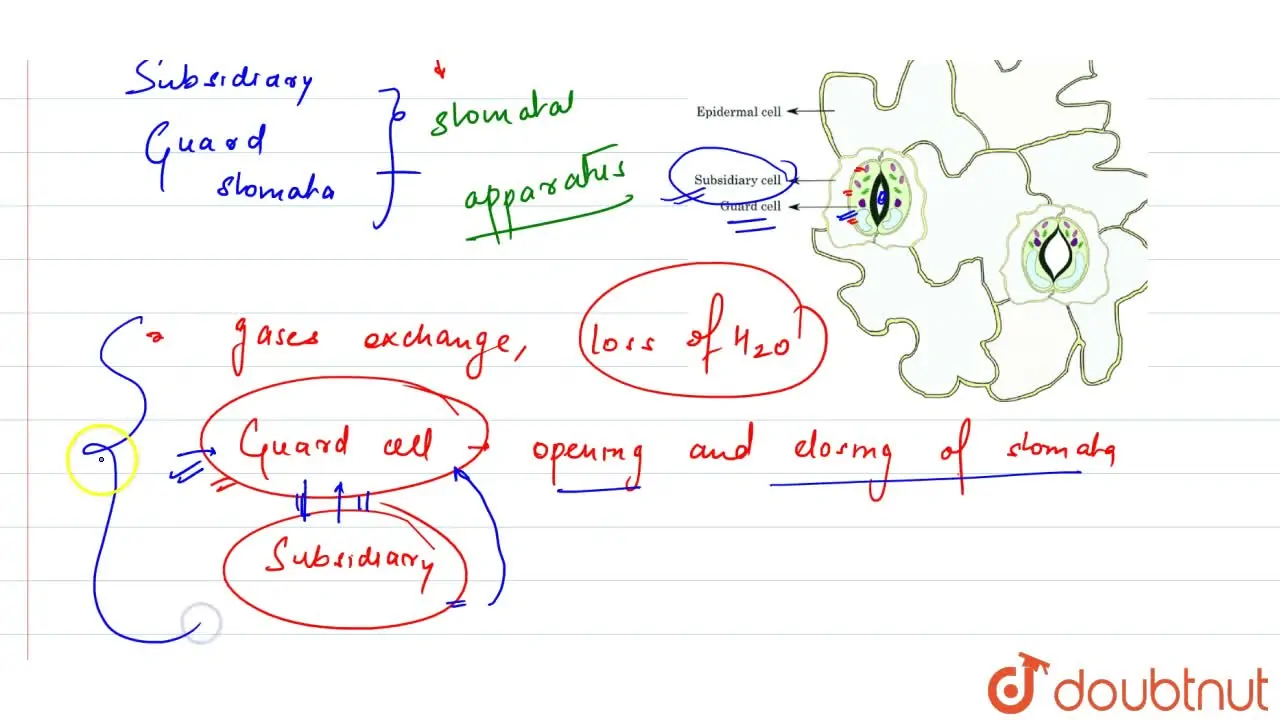 Subsidiary
Guard
stomata
stomatal
apparatus
Epidermal cell
Subsidiary cell
Guard cell
gases exchange, loss of H2O
Guard cell → opening and closing of stomata
Subsidiary
doubtnut